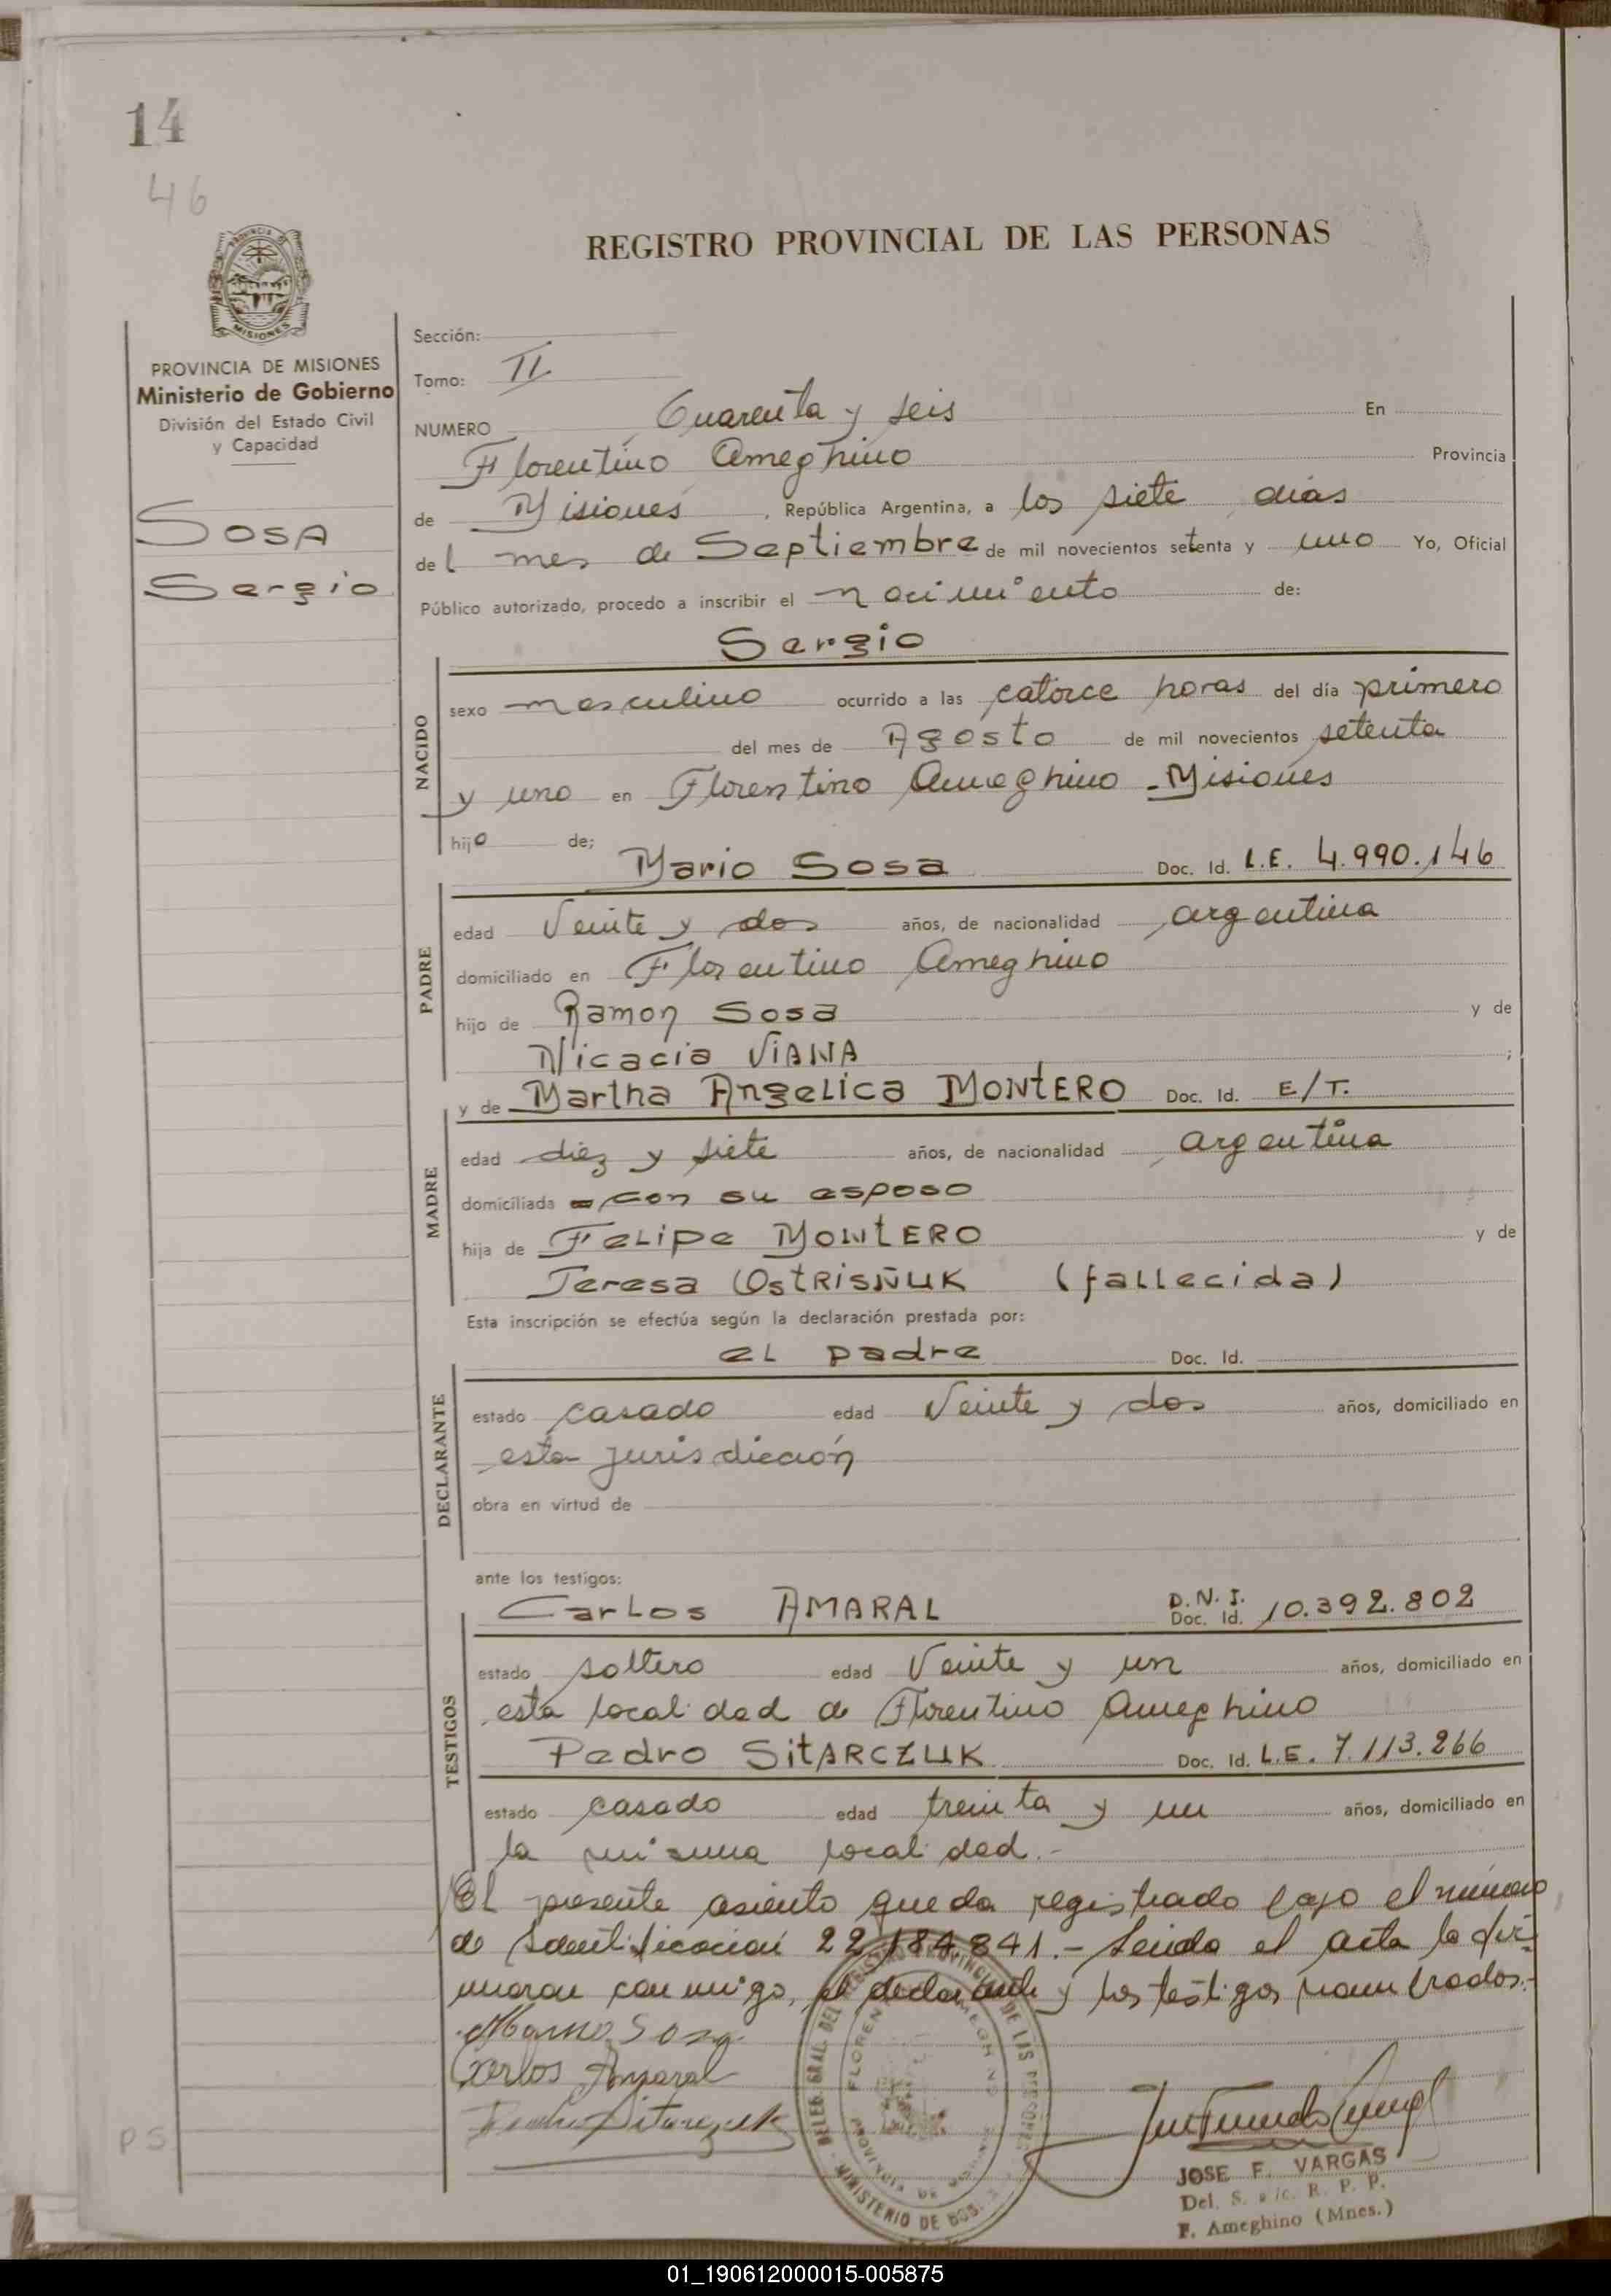 14
46
REGISTRO PROVINCIAL DE LAS PERSONAS
MISIONES
PROVINCIA DE MISIONES
Ministerio de Gobierno
División del Estado Civil
y Capacidad
SOSA
Sergio
Sección:
Tomo: II
NUMERO Cuarenta y seis En
Florentino Ameghino Provincia
de Misiones, República Argentina, a los siete días
del mes de Septiembre de mil novecientos setenta y uno Yo, Oficial
Público autorizado, procedo a inscribir el nacimiento de:
Sergio
NACIDO
sexo masculino ocurrido a las catorce horas del día primero
del mes de Agosto de mil novecientos setenta
y uno en Florentino Ameghino - Misiones
hijo de;
Mario Sosa Doc. Id. L.E. 4.990.146
PADRE
edad Veinte y dos años, de nacionalidad argentina
domiciliado en Florentino Ameghino
hijo de Ramon Sosa y de
Nicacia VIANA;
y de Martha Angelica MONTERO Doc. Id. E/T.
MADRE
edad diez y siete años, de nacionalidad argentina
domiciliada - con su esposo
hija de Felipe MONTERO y de
Teresa OSTRISÑUK (fallecida)
Esta inscripción se efectúa según la declaración prestada por:
el padre Doc. Id.
DECLARANTE
estado casado edad Veinte y dos años, domiciliado en
esta jurisdicción
obra en virtud de
ante los testigos:
Carlos AMARAL D.N.I. Doc. Id. 10.392.802
TESTIGOS
estado soltero edad Veinte y un años, domiciliado en
esta localidad de Florentino Ameghino
Pedro SITARCZUK Doc. Id. L.E. 7.113.266
estado casado edad treinta y un años, domiciliado en
la misma localidad.-
El presente asiento queda registrado bajo el número
de Identificación 22.184.841.- Leida el acta la fir-
maron conmigo, el declarante y los testigos nombrados.-
Mario Sosa
Carlos Amaral
Pedro Sitarczuk
DELEG. GRAL. DEL REGISTRO PROVINCIAL DE LAS PERSONAS
FLORENTINO AMEGHINO
PROVINCIA DE MISIONES
MINISTERIO DE GOB.
JOSE F. VARGAS
Del. S. a/c. R. P. P.
F. Ameghino (Mnes.)
PS
01_190612000015-005875